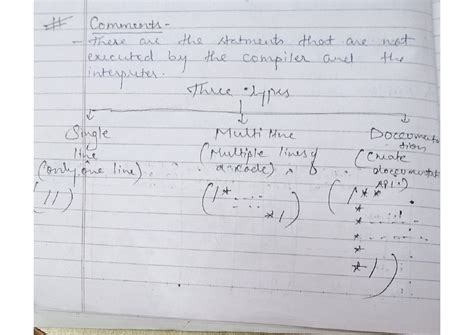 # Comments -
- There are the statments that are not
executed by the compiler and the
interpreter.
Three types
Single
line
(only one line)
(//)
Multi line
(Multiple lines of
code)
(/*.....
.....
*/)
Documenta
tion
(Create
documentat
API.)
(/**
* .....
* .....
* .....
*
*/)